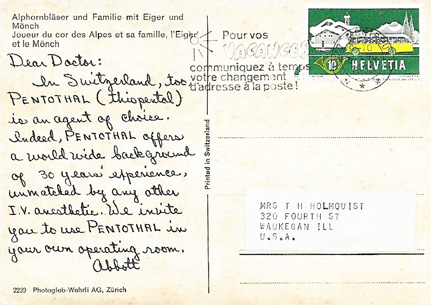 Alphornbläser und Familie mit Eiger und
Mönch
Joueur du cor des Alpes et sa famille, l'Eiger
et le Mönch
Dear Doctor:
In Switzerland, too,
PENTOTHAL (thiopental)
is an agent of choice.
Indeed, PENTOTHAL offers
a world wide background
of 30 years' experience,
unmatched by any other
I.V. anesthetic. We invite
you to use PENTOTHAL in
your own operating room.
Abbott
2239 Photoglob-Wehrli AG, Zürich
Printed in Switzerland
Pour vos
VACANCES
communiquez à temps
votre changement
d'adresse à la poste!
10
HELVETIA
MRS T H HOLMQUIST
320 FOURTH ST
WAUKEGAN ILL
U.S.A.